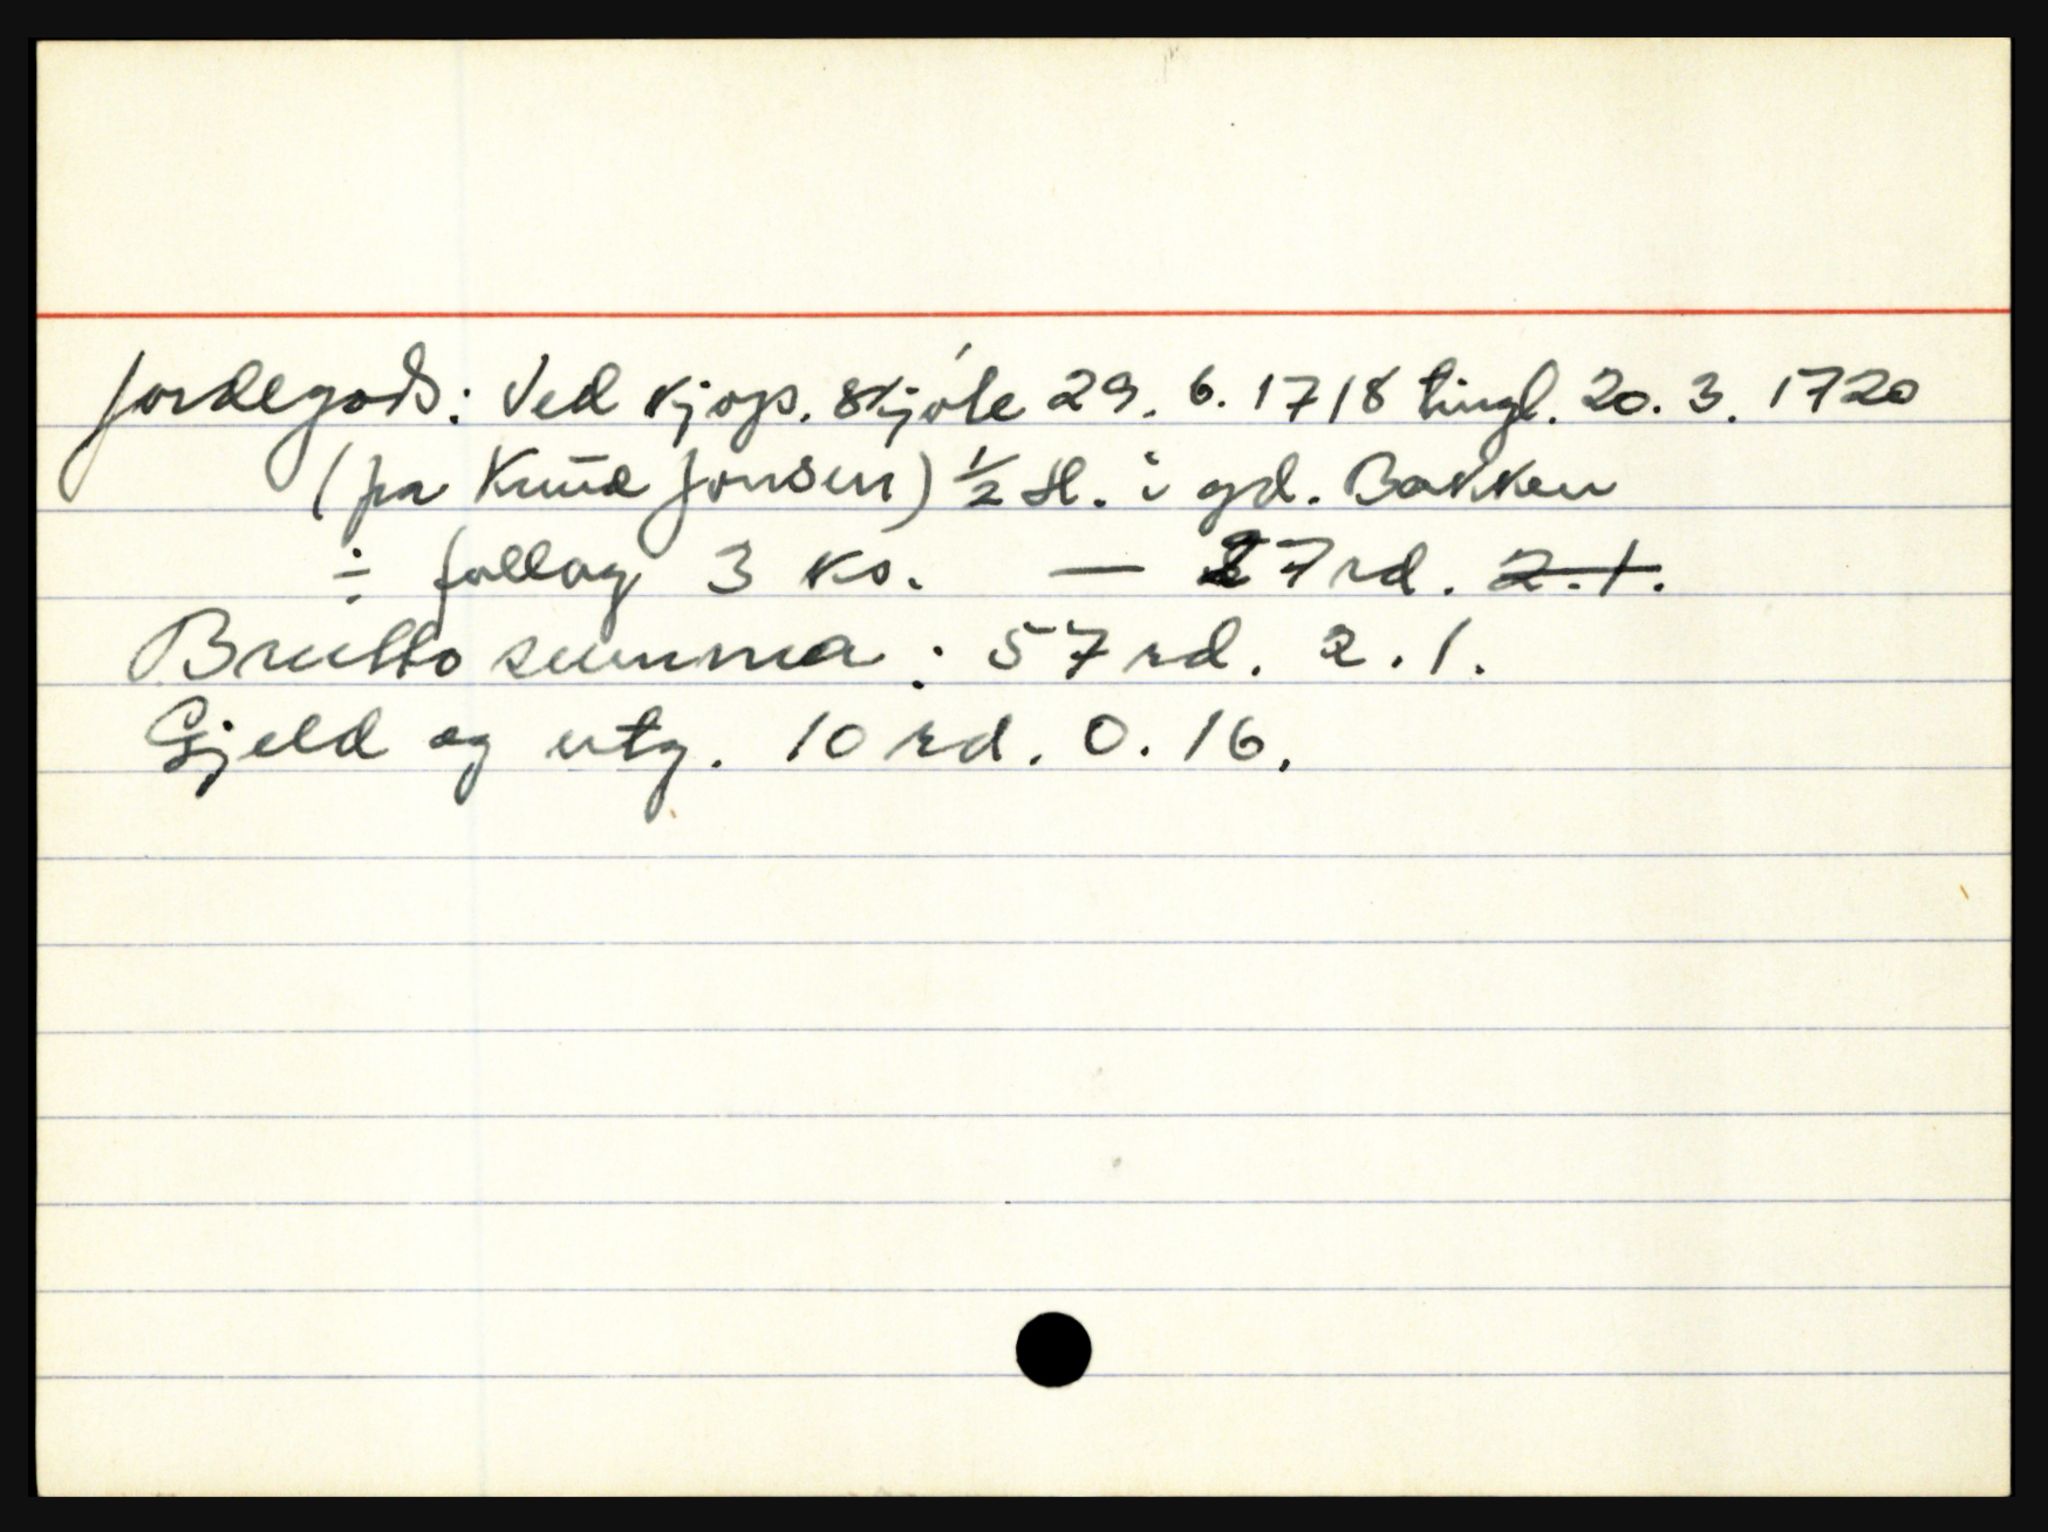 Jordegods: Ved kjøps. skjøte 29. 6. 1718 tingl. 20. 3. 1720
(fra Knud Jonsen) ½ sl. i gd. Bakken
÷ følløg 3 ks. — 27 rd. 2. 1.
Brutto summa: 57 rd. 2. 1.
Gjeld og utg. 10 rd. 0. 16.